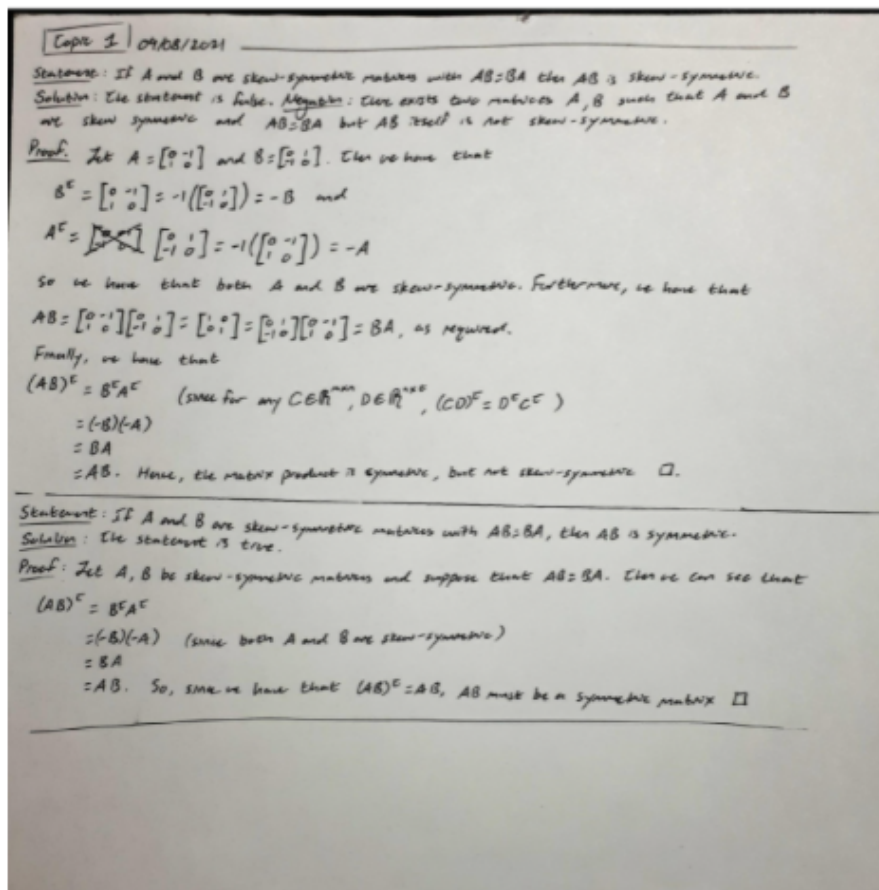 Topic 1 09/08/2021
Statement: If A and B are skew-symmetric matrices with AB=BA then AB is skew-symmetric.
Solution: The statement is false. Negation: There exists two matrices A, B such that A and B
are skew symmetric and AB=BA but AB itself is not skew-symmetric.
Proof. Let A = [0 -1; 1 0] and B = [0 1; -1 0]. Then we have that
Bᵗ = [0 -1; 1 0] = -1([0 1; -1 0]) = -B and
Aᵗ = [0 1; -1 0] = -1([0 -1; 1 0]) = -A
So we have that both A and B are skew-symmetric. Furthermore, we have that
AB = [0 -1; 1 0][0 1; -1 0] = [1 0; 0 1] = [0 1; -1 0][0 -1; 1 0] = BA, as required.
Finally, we have that
(AB)ᵗ = BᵗAᵗ (since for any C∈ℝ, D∈ℝ, (CD)ᵗ = DᵗCᵗ)
= (-B)(-A)
= BA
= AB. Hence, the matrix product is symmetric, but not skew-symmetric □.
Statement: If A and B are skew-symmetric matrices with AB=BA, then AB is symmetric.
Solution: The statement is true.
Proof: Let A, B be skew-symmetric matrices and suppose that AB=BA. Then we can see that
(AB)ᵗ = BᵗAᵗ
= (-B)(-A) (since both A and B are skew-symmetric)
= BA
= AB. So, since we have that (AB)ᵗ = AB, AB must be a symmetric matrix □